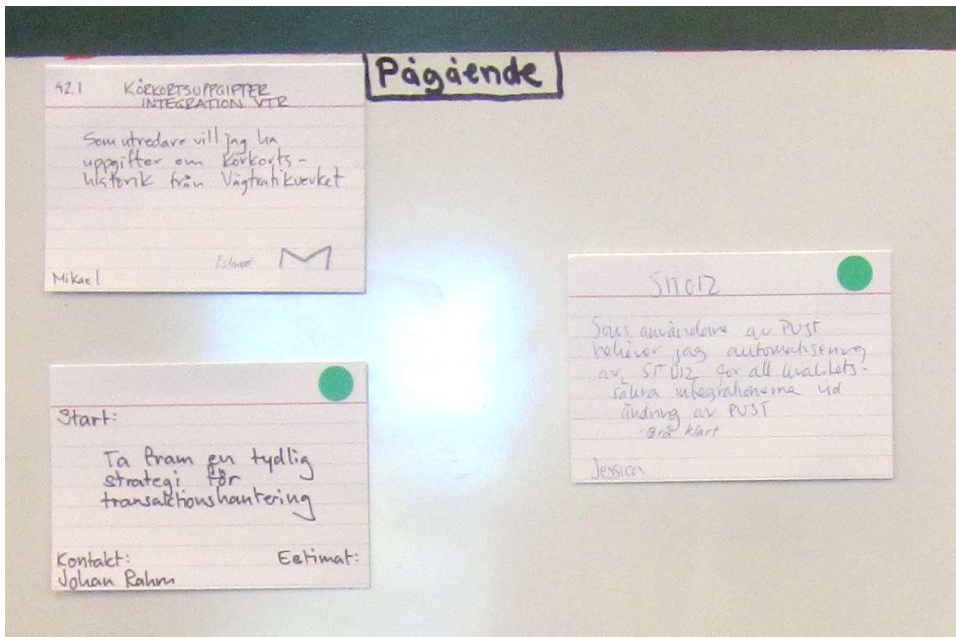 Pågående
42.1 KÖRKORTSUPPGIFTER
INTEGRATION VTR
Som utredare vill jag ha
uppgifter om körkorts-
historik från Vägtrafikverket
Estimat M
Mikael
Start:
Ta fram en tydlig
strategi för
transaktionshantering
Kontakt: Estimat:
Johan Rahm
SIT 012
Som användare av PUST
behöver jag automatisering
av SIT 012 för att kvalitets-
säkra integrationerna vid
ändring av PUST
klart
Jessica